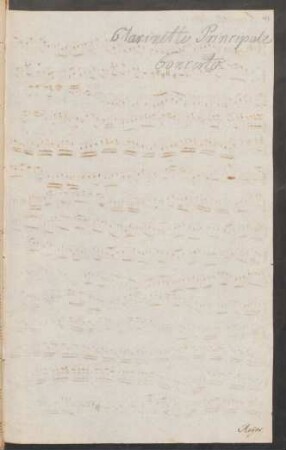 Clarinetto Principale
Concerto